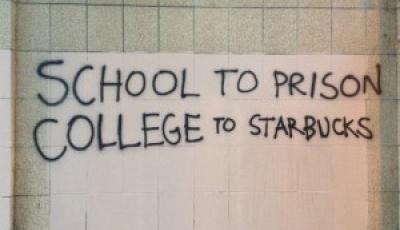 SCHOOL TO PRISON
COLLEGE TO STARBUCKS